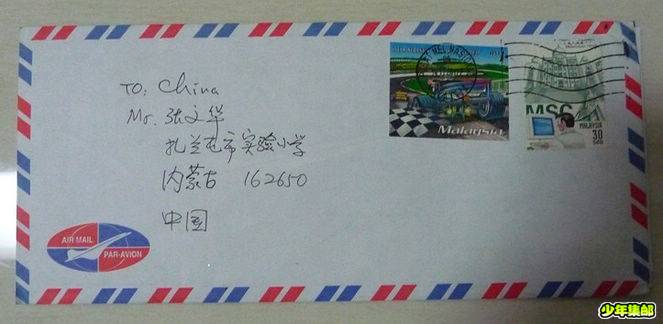 TO: China
Mr. 张文华
扎兰屯市实验小学
内蒙古 162650
中国
AIR MAIL
PAR-AVION
Malaysia
MSC
MALAYSIA
30
sen
少年集邮